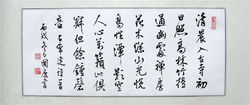 清晨入古寺初
日照高林竹徑
通幽處禅房
花木深山光悦
鳥性潭影空
人心萬籁此俱
寂但餘鐘磬
音